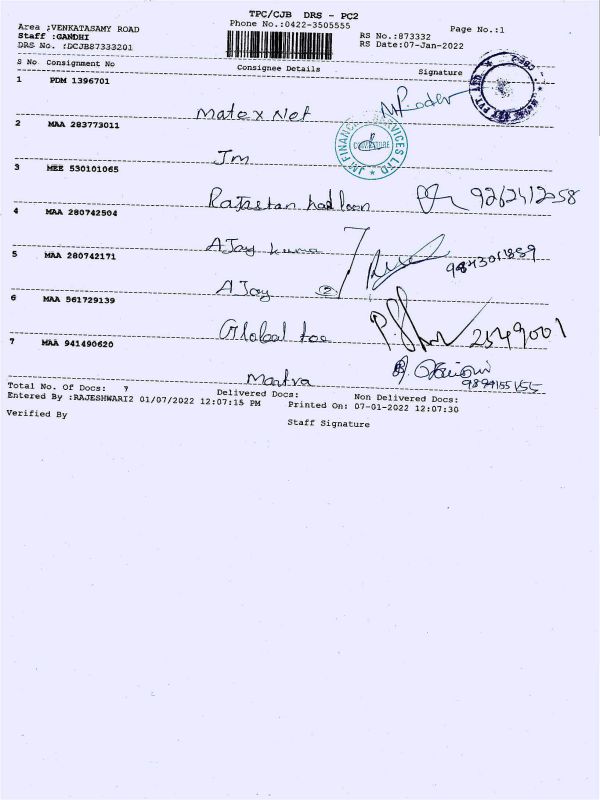 TPC/CJB DRS - PC2
Area ;VENKATASAMY ROAD Phone No.:0422-3505555 Page No.:1
Staff :GANDHI RS No.:873332
DRS No. :DCJB87333201 RS Date:07-Jan-2022
S No Consignment No Consignee Details Signature
1 PDM 1396701
Matex Net
2 MAA 283773011
Jm
JM FINANCIAL SERVICES LTD
COIMBATORE
3 MEE 530101065
Rajastan 9262412058
4 MAA 280742504
AJay kuma
5 MAA 280742171 9843011889
AJay 2
6 MAA 561729139
Global tee 2549001
7 MAA 941490620
Matva 9894155155
Total No. Of Docs: 7 Delivered Docs: Non Delivered Docs:
Entered By :RAJESHWARI2 01/07/2022 12:07:15 PM Printed On: 07-01-2022 12:07:30
Verified By Staff Signature